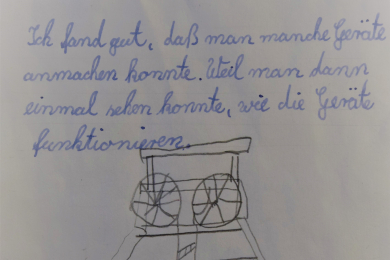 Ich fand gut, daß man manche Geräte
anmachen konnte. Weil man dann
einmal sehen konnte, wie die Geräte
funktionieren.